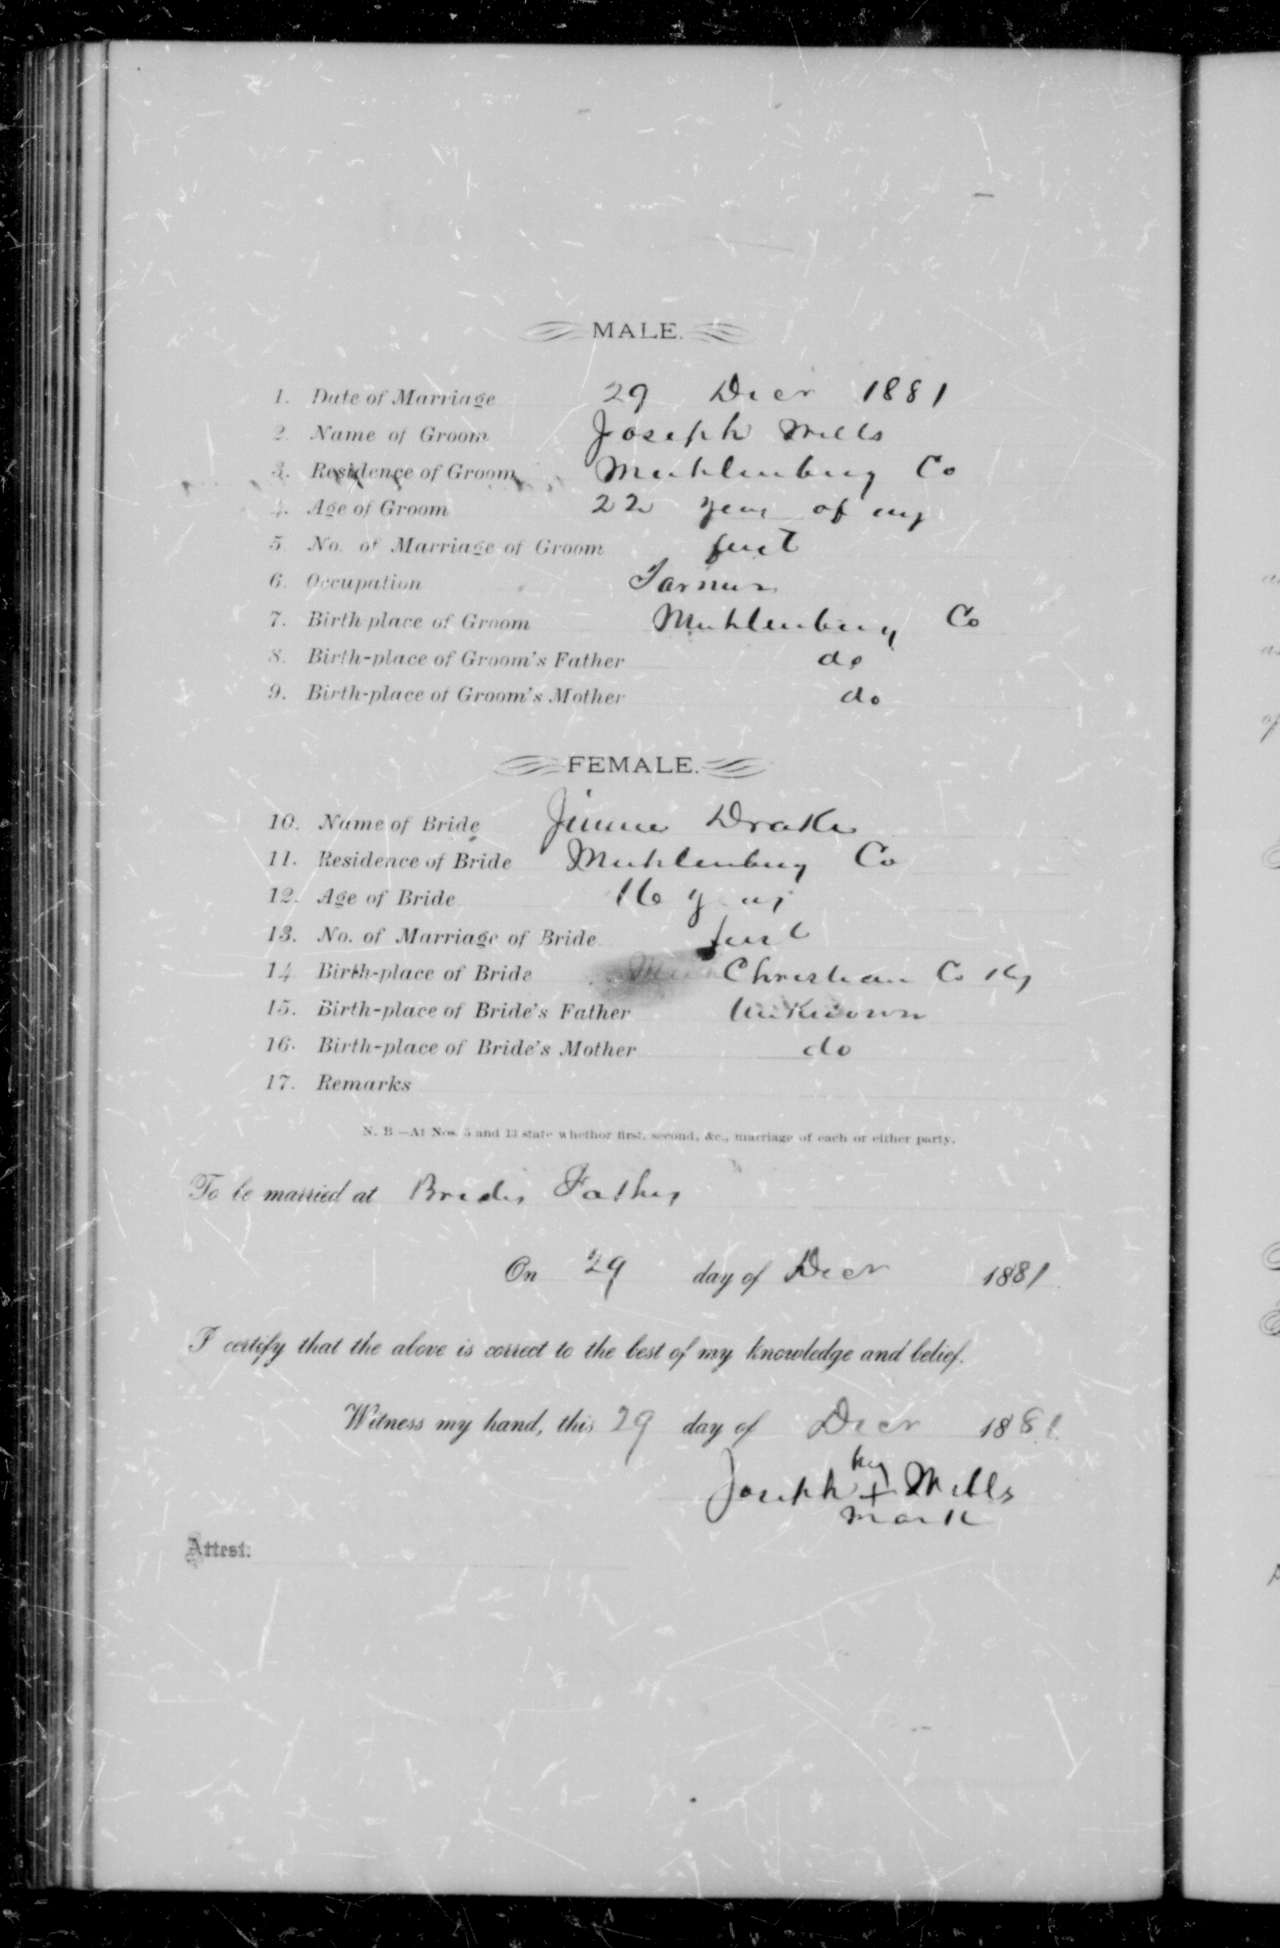 MALE.
1. Date of Marriage 29 Decr 1881
2. Name of Groom Joseph Mills
3. Residence of Groom Muhlenburg Co
4. Age of Groom 22 year of ag
5. No. of Marriage of Groom first
6. Occupation Farmer
7. Birth-place of Groom Muhlenburg Co
8. Birth-place of Groom's Father do
9. Birth-place of Groom's Mother do
FEMALE.
10. Name of Bride Drake
11. Residence of Bride Muhlenburg Co
12. Age of Bride 16 years
13. No. of Marriage of Bride first
14. Birth-place of Bride Christian Co Ky
15. Birth-place of Bride's Father Unknown
16. Birth-place of Bride's Mother do
17. Remarks
N. B.—At Nos. 5 and 13 state whether first, second, &c., marriage of each or either party.
To be married at Brides Fathers
On 29 day of Decr 1881
I certify that the above is correct to the best of my knowledge and belief.
Witness my hand, this 29 day of Decr 1881
his
Joseph + Mills
mark
Attest: